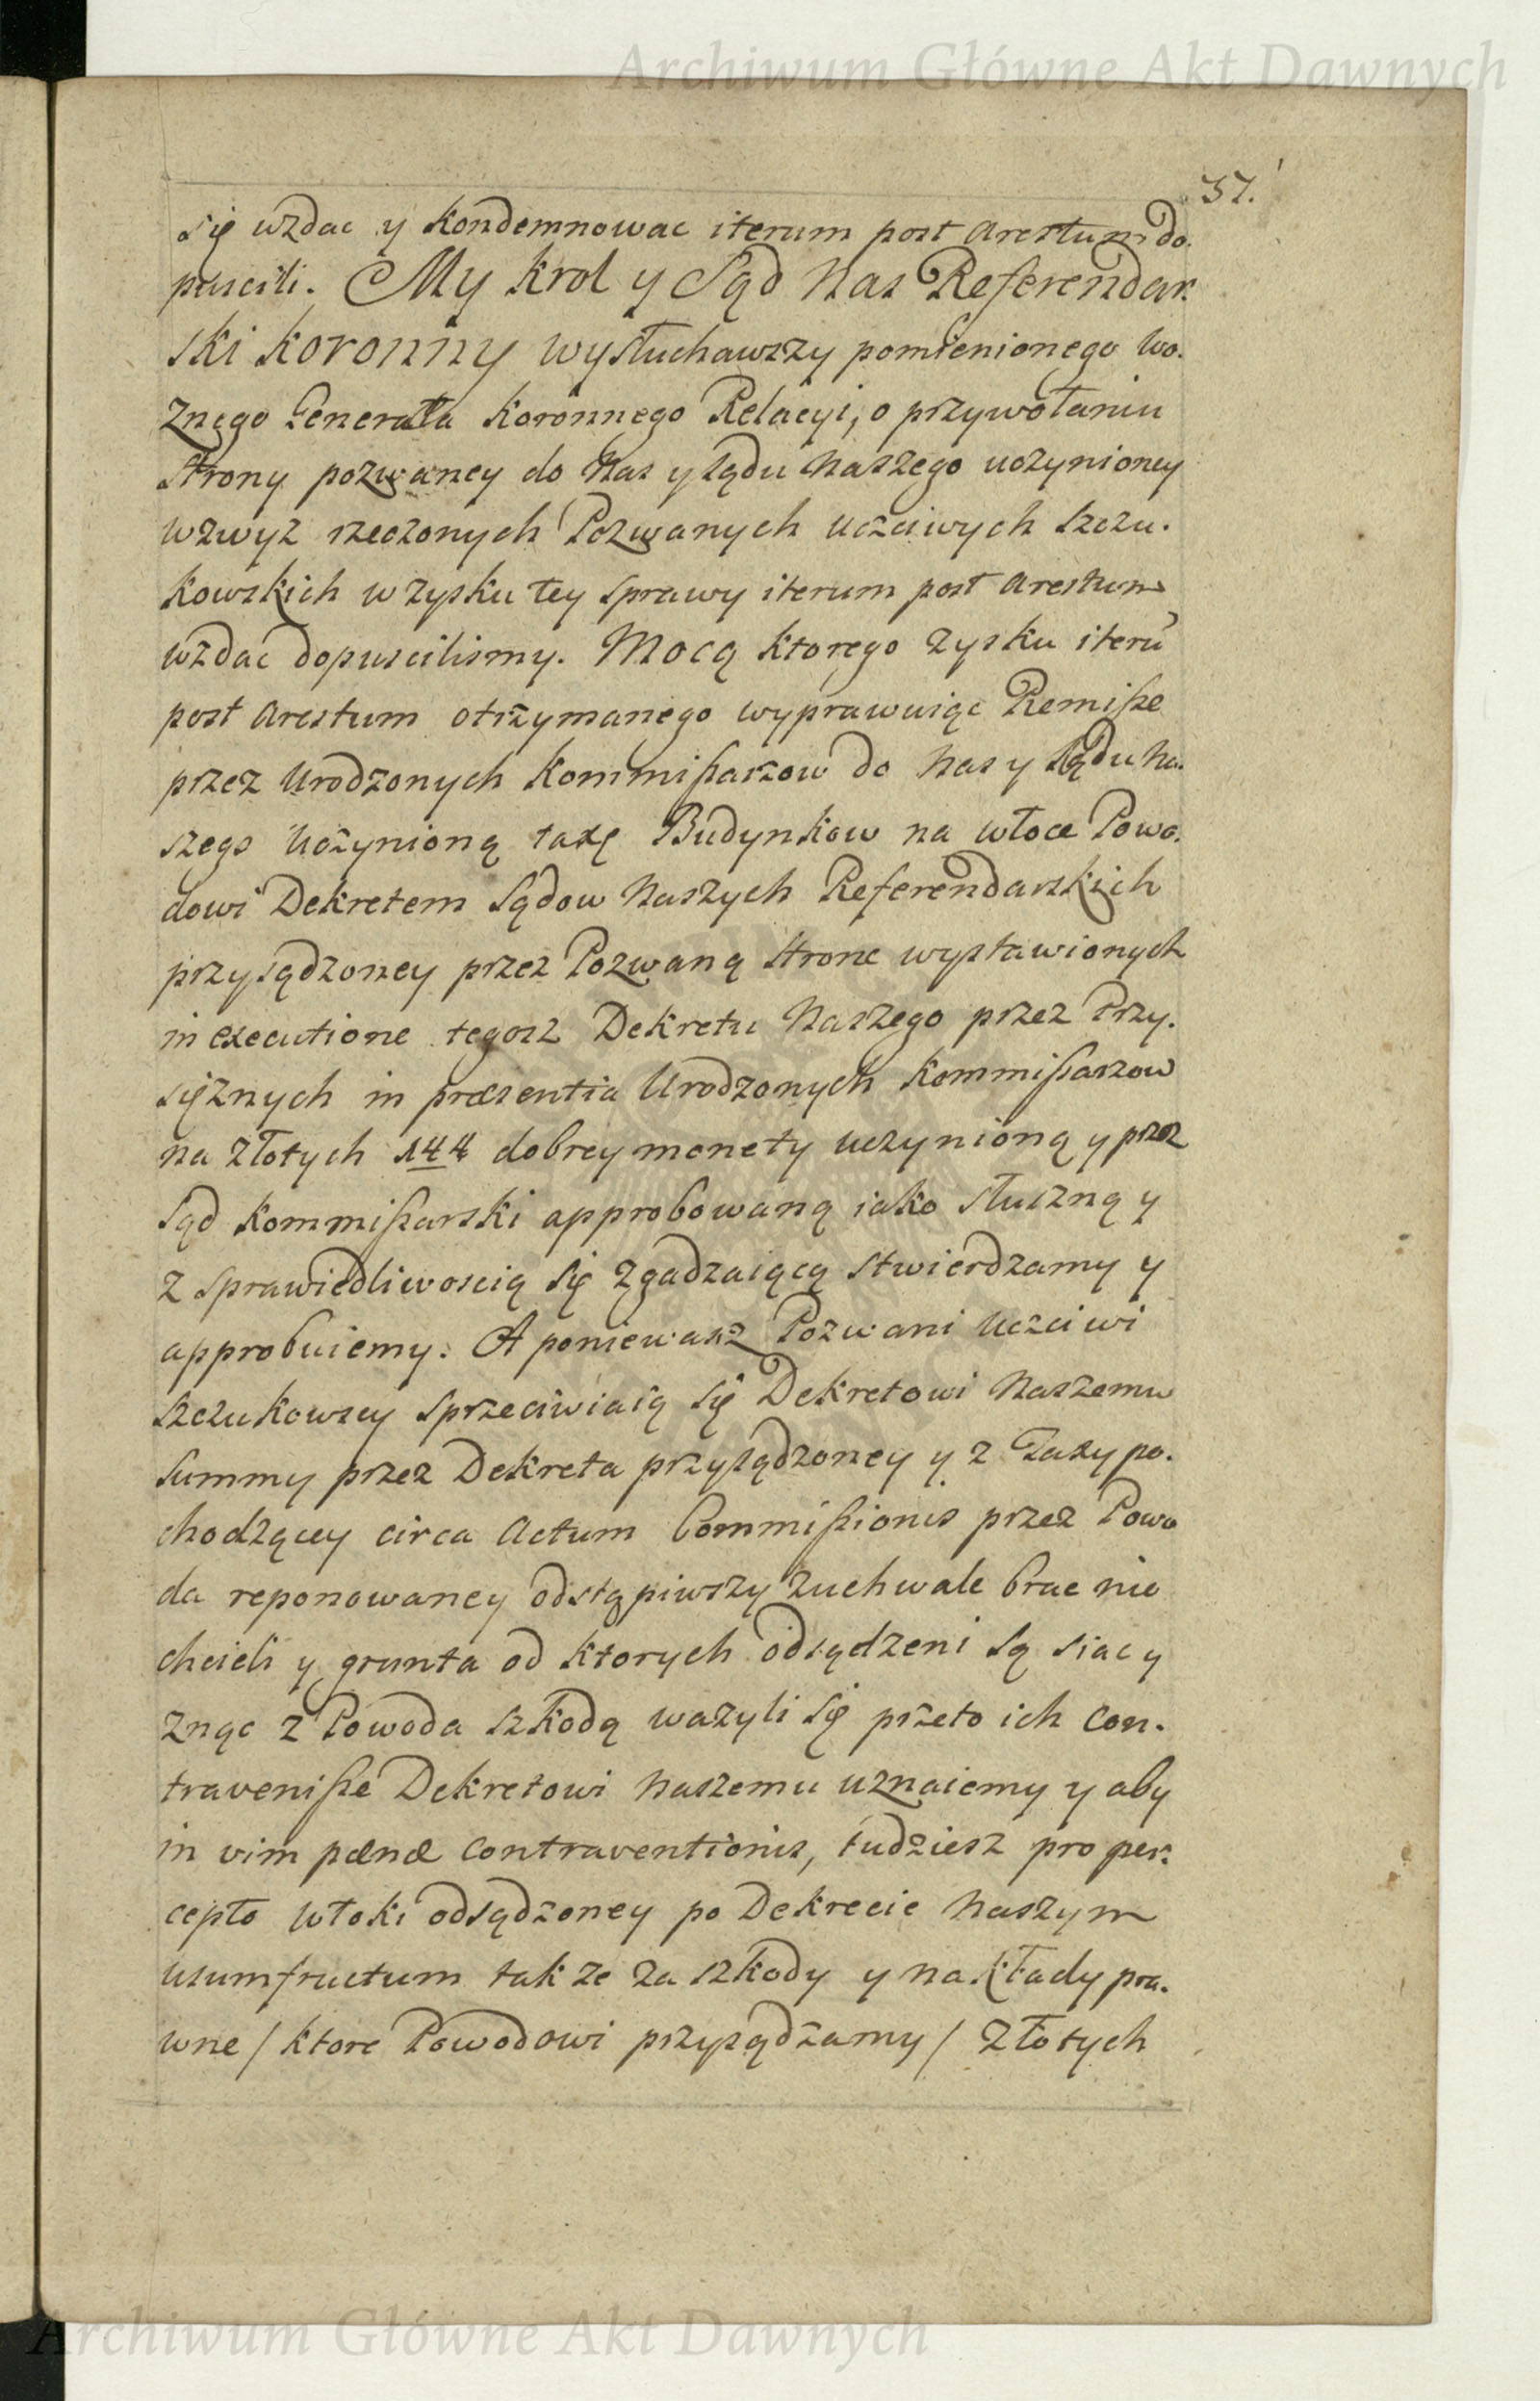 Archiwum Główne Akt Dawnych
37.
się wzdac y kondemnowac iterum post Arestum do.
puscili. My Krol y Sąd Nas Referendar.
ski Koronny wysłuchawszy pomienionego Wo.
znego Generała Koronnego Relacyi, o przywołaniu
strony pozwaney do Nas y Sądu Naszego uczynioney
wzwyz rzeczonych Pozwanych Uczciwych Szczu.
kowskich w zysku tey sprawy iterum post Arestum
wzdac dopuscilismy. Mocą ktorego zysku iterũ
post Arestum otrzymanego wyprawuiąc Remiße
przez Urodzonych Kommißarzow do Nas y Sądu Na.
szego Uczynioną taxę Budynkow na włoce Powo.
dowi Dekretem Sądow Naszych Referendarskich
przysądzoney przez Pozwaną stronę wystawionych
in executione tegosz Dekretu Naszego przez Przy.
sięznych in præsentia Urodzonych Kommißarzow
na złotych 144 dobrey monety uczynioną y przez
Sąd Kommißarski approbowaną iako słuszną y
z sprawiedliwoscią się zgadzaiącą stwierdzamy y
approbuiemy. A poniewasz Pozwani Uczciwi
Szczukowscy sprzeciwiaią się Dekretowi Naszemu
summy przez Dekreta przysądzoney y z Taxy po.
chodzącey circa Actum Commißionis przez Powo
da reponowaney odstąpiwszy zuchwale brac nie
chcieli y grunta od ktorych odsądzeni są siac y
znąc z Powoda szkodą wazyli się przeto ich con.
traveniße Dekretowi Naszemu uznaiemy y aby
in vim pænæ contraventionis, tudziesz pro per.
cepto włoki odsądzoney po Dekrecie Naszym
usumfructum takze za szkody y nakłady pra.
wne / ktore Powodowi przysądzamy / złotych
Archiwum Główne Akt Dawnych